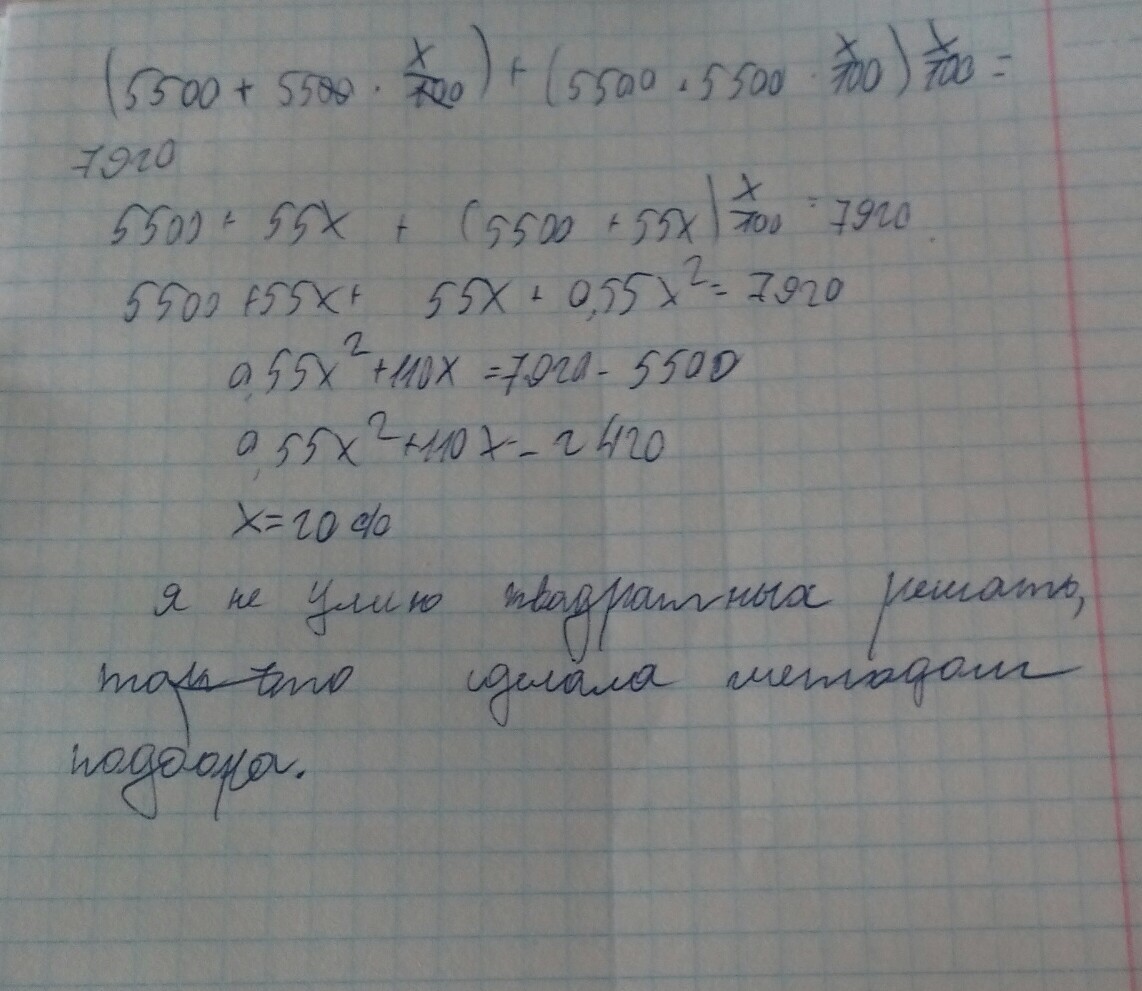 (5500 + 5500 · x/100) + (5500 + 5500 · x/100) x/100 =
7920
5500 + 55x + (5500 + 55x) x/100 = 7920
5500 + 55x + 55x + 0,55x² = 7920
0,55x² + 110x = 7920 - 5500
0,55x² + 110x = 2420
x = 20%
я не умию квадратных решать,
так что сделала методом
подбора.